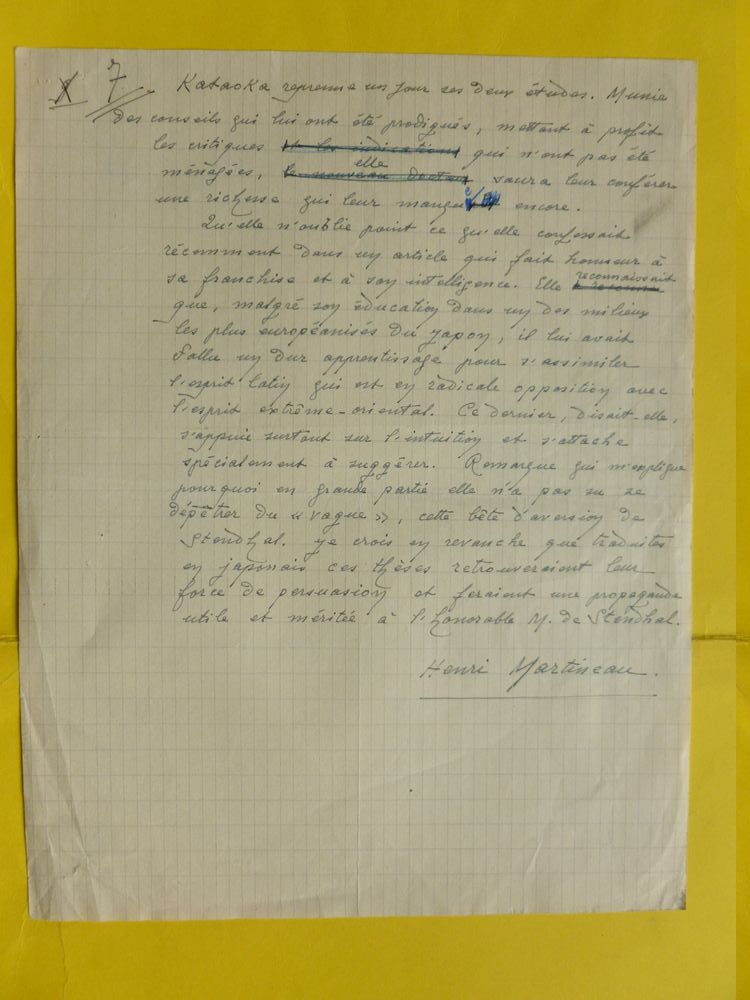 X 7. Kataoka reprenne un jour ses deux études. Munie
des conseils qui lui ont été prodigués, mettant à profit
les critiques et les indications qui n'ont pas été
elle
ménagées, le nouveau docteur saura leur conférer
une richesse qui leur manque encore.
Qu'elle n'oublie point ce qu'elle confessait
récemment dans un article qui fait honneur à
sa franchise et à son intelligence. Elle reconnaissait
que, malgré son éducation dans un des milieux
les plus européanisés du Japon, il lui avait
fallu un dur apprentissage pour s'assimiler
l'esprit latin qui est en radicale opposition avec
l'esprit extrême-oriental. Ce dernier, disait-elle,
s'appuie surtout sur l'intuition et s'attache
spécialement à suggérer. Remarque qui m'explique
pourquoi en grande partie elle n'a pas su se
dépêtrer du « vague », cette bête d'aversion de
Stendhal. Je crois en revanche que traduites
en japonais ces thèses retrouveraient leur
force de persuasion et feraient une propagande
utile et méritée à l'honorable M. de Stendhal.
Henri Martineau.